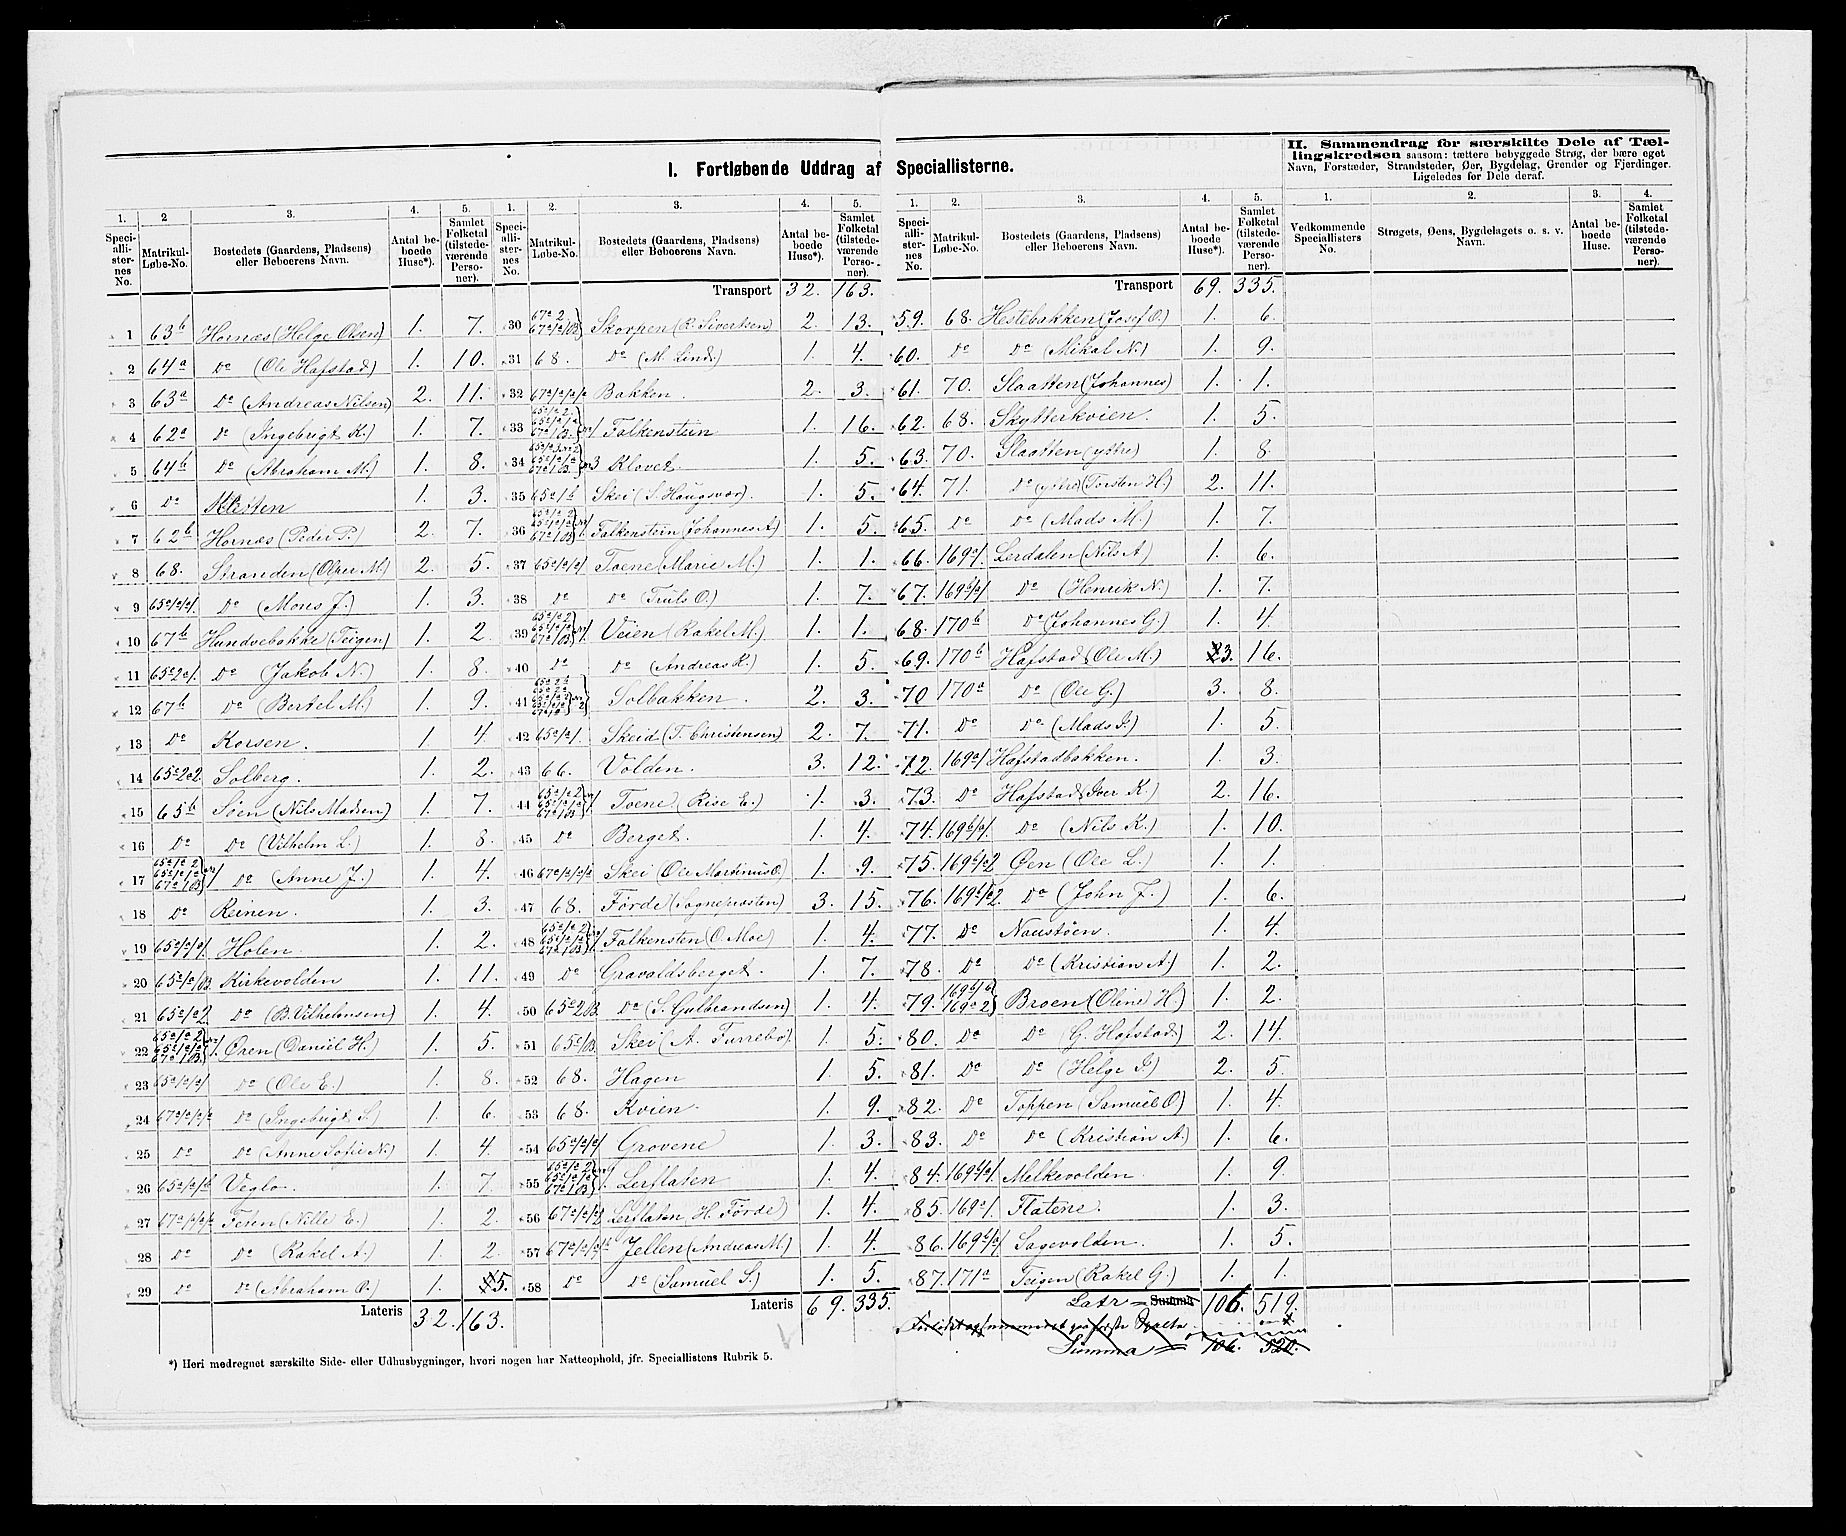 I. Fortløbende Uddrag af Speciallisterne.
II. Sammendrag for særskilte Dele af Tæl-
lingskredsen saasom: tættere bebyggede Strøg, der bære eget
Navn, Forstæder, Strandsteder, Øer, Bygdelag, Grender og Fjerdinger.
Ligeledes for Dele deraf.
1. 2 3. 4. 5.
Speciallisternes No. Matrikul-Løbe-No. Bostedets (Gaardens, Pladsen) eller Beboerens Navn. Antal beboede Huse*). Samlet Folketal (tilstedeværende Personer).
1 63b Hornæs (Helge Olsen) 1. 7.
2 64a Do (Ole Hafstad) 1. 10.
3 63a Do (Andreas Nilsen) 2. 11.
4 62a Do (Ingebrigt K.) 1. 7.
5 64b Do (Abraham M.) 1. 8.
6 Do 1. 3.
7 62b Hornæs (Peder P.) 2. 7.
8 68. Stranden (Olper M.) 2. 5.
9 65a/a/1. Do (Mons J.) 1. 3.
10 67b Hundvebakke (Teigen) 1. 2.
11 65a2a1. Do (Jakob N.) 1. 8.
12 67b Do (Bertel M.) 1. 9.
13 Do Korsen. 1. 4.
14 65a2a2. Solberg. 1. 2.
15 65b Søen (Nils Madsen) 1. 7.
16 Do Do (Vilhelm L.) 1. 8.
17 65a1a2 65a1a1a 67a1B. Do (Anne J.) 1. 4.
18 Do Reinen. 1. 3.
19 65a/a/1. Holen. 1. 2.
20 65a1a1B. Kirkevolden 1. 11.
21 65a1a2. Do (B. Vilhelmsen) 1. 4.
22 65a1a2 65a1a1a 67a1B. Øren (Daniel H.) 1. 5.
23 65a/a/1 Do (Ole E.) 1. 8.
24 67a/a/a Do (Ingebrigt S.) 1. 6.
25 Do Do (Anne Sofie N.) 1. 4.
26 65a1a1b Veglo. 1. 7.
27 67a/a/a Feten (Nille E.) 1. 2.
28 Do Do (Rakel A.) 1. 2.
29 Do Do (Abraham O.) 1. 5.
Lateris 32. 163.
*) Heri medregnet særskilte Side- eller Udhusbygninger, hvori nogen har Natteophold, jfr. Speciallistens Rubrik 5.
1. 2. 3. 4. 5.
Speciallisternes No. Matrikul-Løbe-No. Bostedets (Gaardens, Pladsen) eller Beboerens Navn. Antal beboede Huse*). Samlet Folketal (tilstedeværende Personer).
Transport 32. 163.
30 67a2 67a1a1B Skorpen (R. Sivertsen) 2. 13.
31 68. Do (M. Lind.) 1. 4.
32 67a/a/a/a Bakken. 2. 3.
33 65a1a2. 65a1a1a 67a1B. Falkenstein 1. 16.
34 Klovet 1. 5.
35 65a1b Skei (S. Haugsvær). 1. 5.
36 65a1a2 65a1a1a 67a1B. Falkenstein (Johannes A.) 1. 5.
37 65a/a/a/ Toene (Marie M.) 1. 1.
38 Do Do (Truls O.) 1. 7.
39 65a1a2 65a1a1a 67a1B. Veien (Rakel M.) 1. 1.
40 Do Do (Andreas K.) 1. 5.
41 Solbakken. 2. 3.
42 65a/a/1. Skeid (T. Christensen) 2. 7.
43 66. Volden. 3. 12.
44 65a1a2 65a1a1a 67a1B. Toene (Rise E.) 1. 3.
45 Do Berget. 1. 4.
46 67a/a/a/a Skei (Ole Martinus O.) 1. 9.
47 68. Førde (Sogneprosten) 3. 15.
48 65a1a2 65a1a1a 67a1B. Falkensten (O. Moe) 1. 4.
49 Do Gravaldsberget. 1. 7.
50 65a2B. Do (S. Gulbrandsen) 1. 4.
51 65a1B. Skei (A. Furrebø). 1. 5.
52 68. Hagen 1. 5.
53 68. Kvien. 1. 9.
54 65a/a/a/ Grovene 1. 3.
55 65a1a2 65a1a1a 67a1B. Lerflaten 1. 4.
56 67a/a/a2 Lerflaten (H. Førde) 1. 4.
57 67a/a/a/b Jellen (Andreas M.) 1. 4.
58 Do Do (Samuel S.) 1. 5.
Lateris 69. 335.
1. 2. 3. 4. 5.
Speciallisternes No. Matrikul-Løbe-No. Bostedets (Gaardens, Pladsen) eller Beboerens Navn. Antal beboede Huse*). Samlet Folketal (tilstedeværende Personer).
Transport 69. 335.
59. 68. Hestebakken (Josef O.) 1. 6.
60. Do Do (Mikal N.) 1. 9.
61. 70. Slaatten (Johannes) 1. 1.
62. 68. Skytterkvien. 1. 5.
63. 70. Slaatten (ystre) 1. 8.
64. 71. Do (ystre) (Torsten H.) 2. 11.
65. Do Do (Mads M.) 1. 7.
66. 169a1. Lerdalen (Nils A) 1. 6.
67. 169b/a/ Do (Henrik N.) 1. 7.
68. 170b Do (Johannes G.) 1. 4.
69. 170b Hafstad (Ole M.) 3. 16.
70 170a Do (Ole G.) 3. 8.
71. Do Do (Mads I.) 1. 5.
72. 169a1 Hafstadbakken. 1. 3.
73. Do Hafstad (Iver K.) 2. 16.
74. 169b/a/1. Do (Nils K.) 1. 10.
75. 169b/a2 Øen (Ole L.) 1. 1.
76. 169b/a2. Do (John J.) 1. 6.
77. Do Naustøen. 1. 4.
78. Do Do (Kristian A.) 1. 2.
79. 169b1b 169a2 Broen (Oline H.) 1. 2.
80. Do Do G. Hafstad.) 2. 14.
81. Do Do (Helge I.) 2. 5.
82. Do Toppen (Samuel O) 1. 4.
83. Do Do (Kristian A.) 1. 6.
84. 169b/a/1. Melkevolden. 1. 9.
85. 169a1. Flatene. 1. 3.
86. 169b/a/ Sagevolden. 1. 5.
87. 171a Teigen (Rakel G.) 1. 1.
Latr = Summa 106. 519.
Summa = 106. 520.
1. 2. 3. 4.
Vedkommende Speciallisters No. Strøgets, Øens, Bygdelagets o. s. v. Navn. Antal beboede Huse. Samlet Folketal (tilstedeværende Personer).